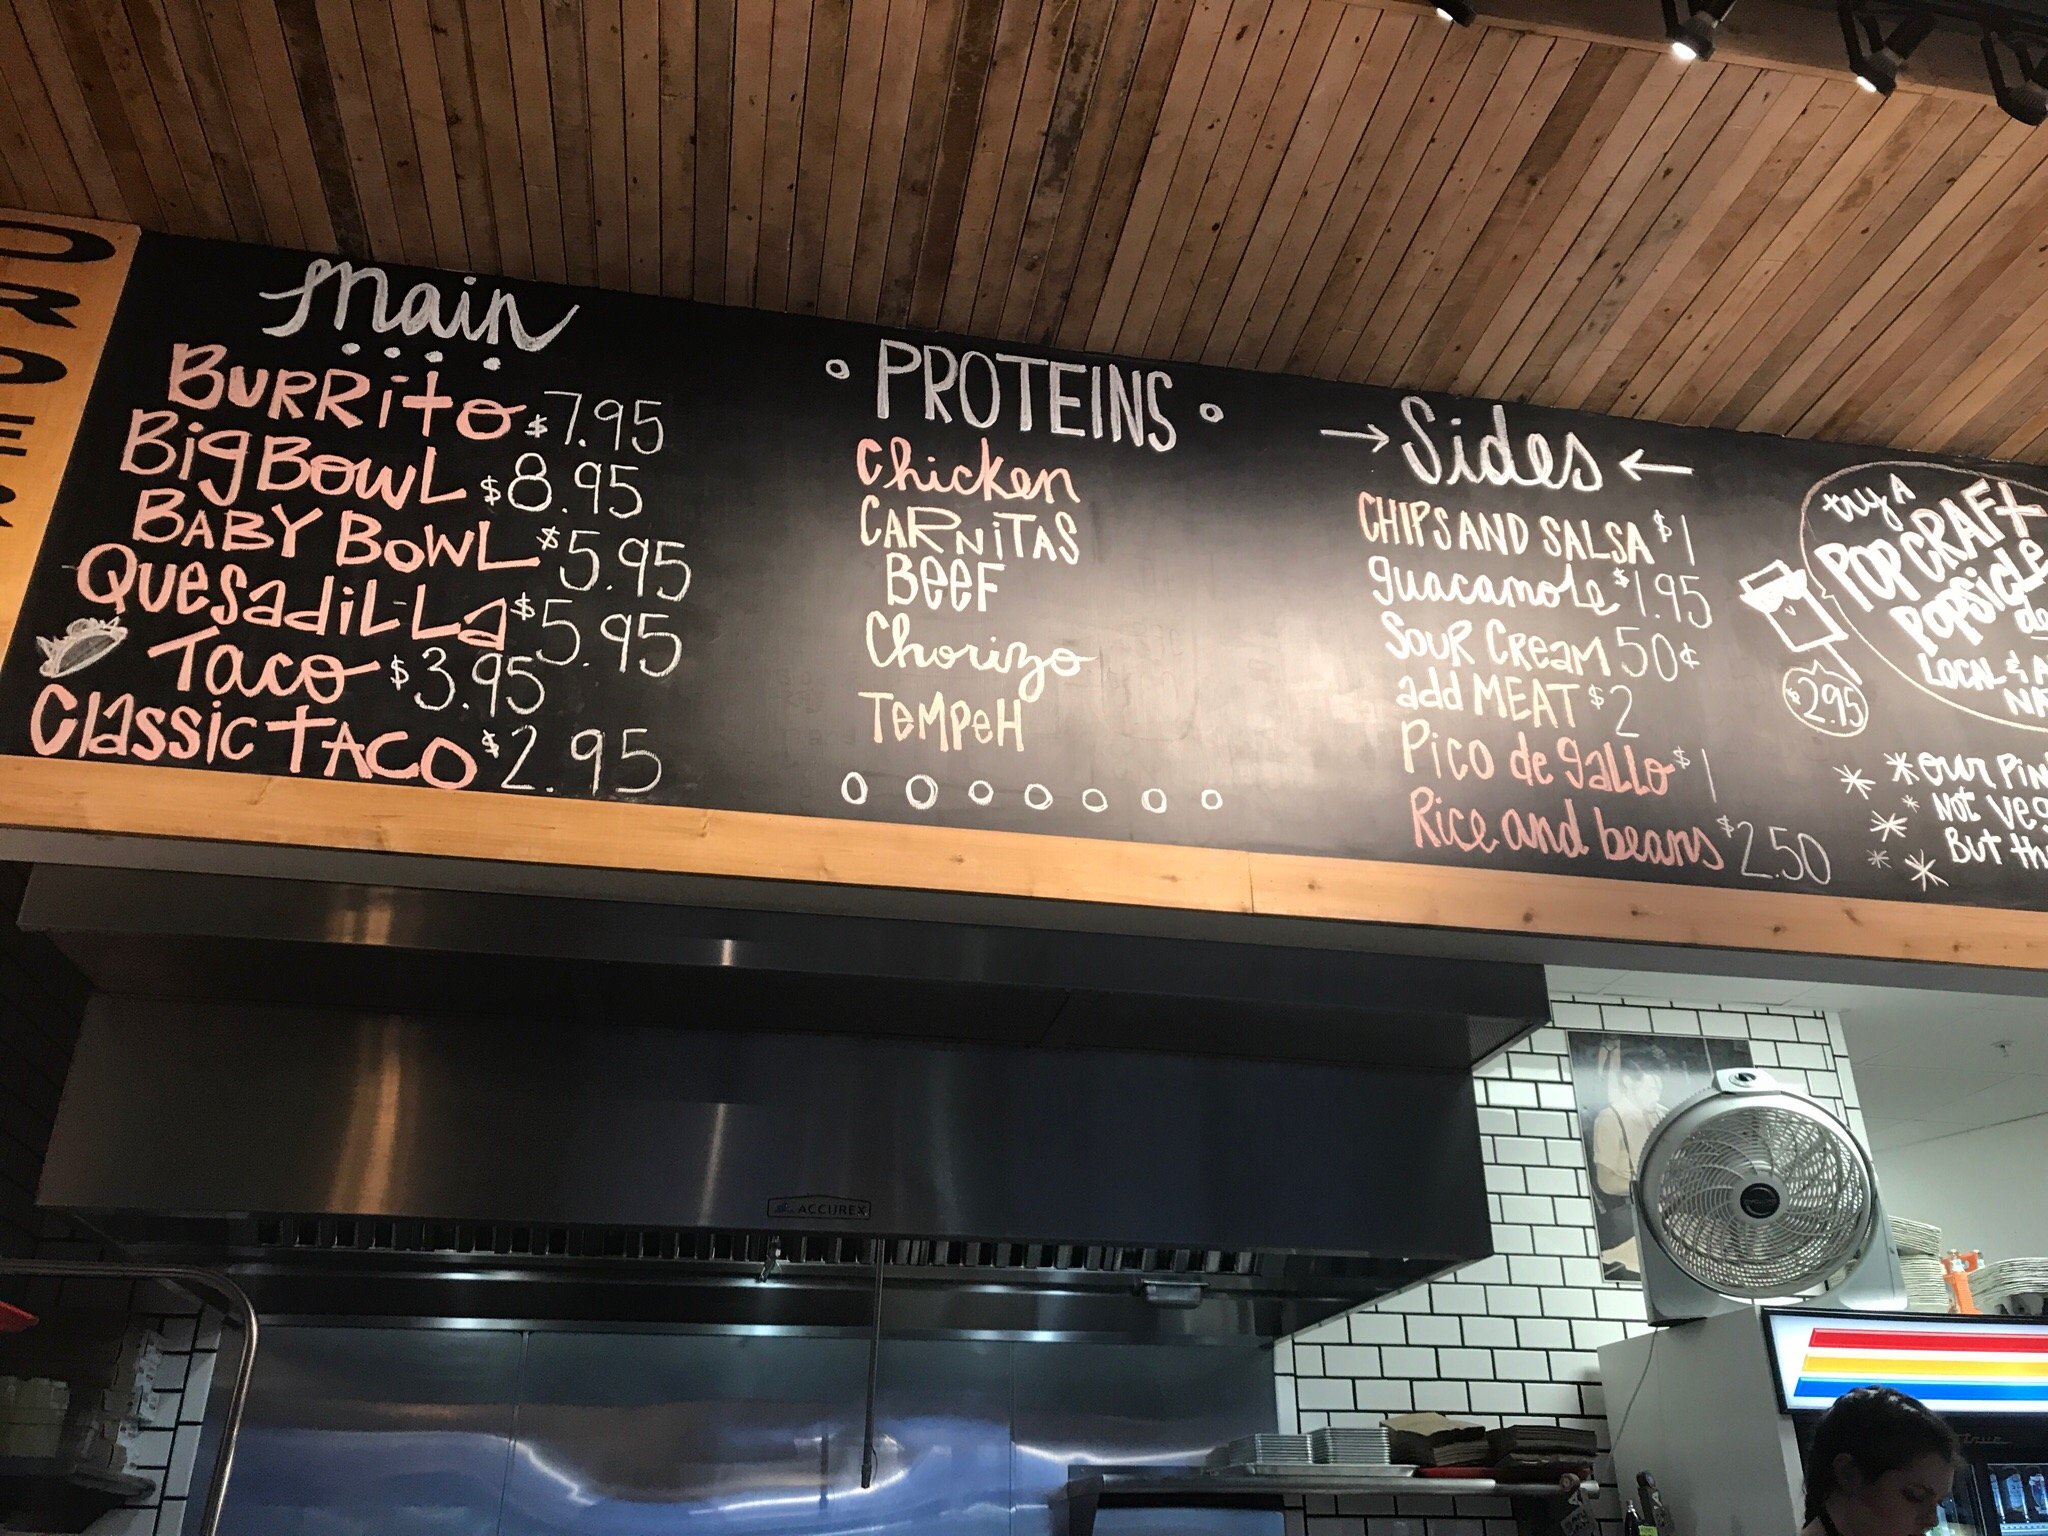 ORDER
Main
BURRito $7.95
BigBowL $8.95
BABY BoWL $5.95
QUesadiLLa $5.95
Taco $3.95
Classic TACO $2.95
PROTEINS
Chicken
CARNiTAS
BeeF
Chorizo
TeMPeH
→ Sides ←
CHIPS AND SALSA $1
guacamole $1.95
SOUR CReaM 50¢
add MEAT $2
Pico de gallo $1
Rice and beans $2.50
try A
POP CRAFT
POPSICLE
LOCAL &
$2.95
*OUR
Not
But
ACCUREX